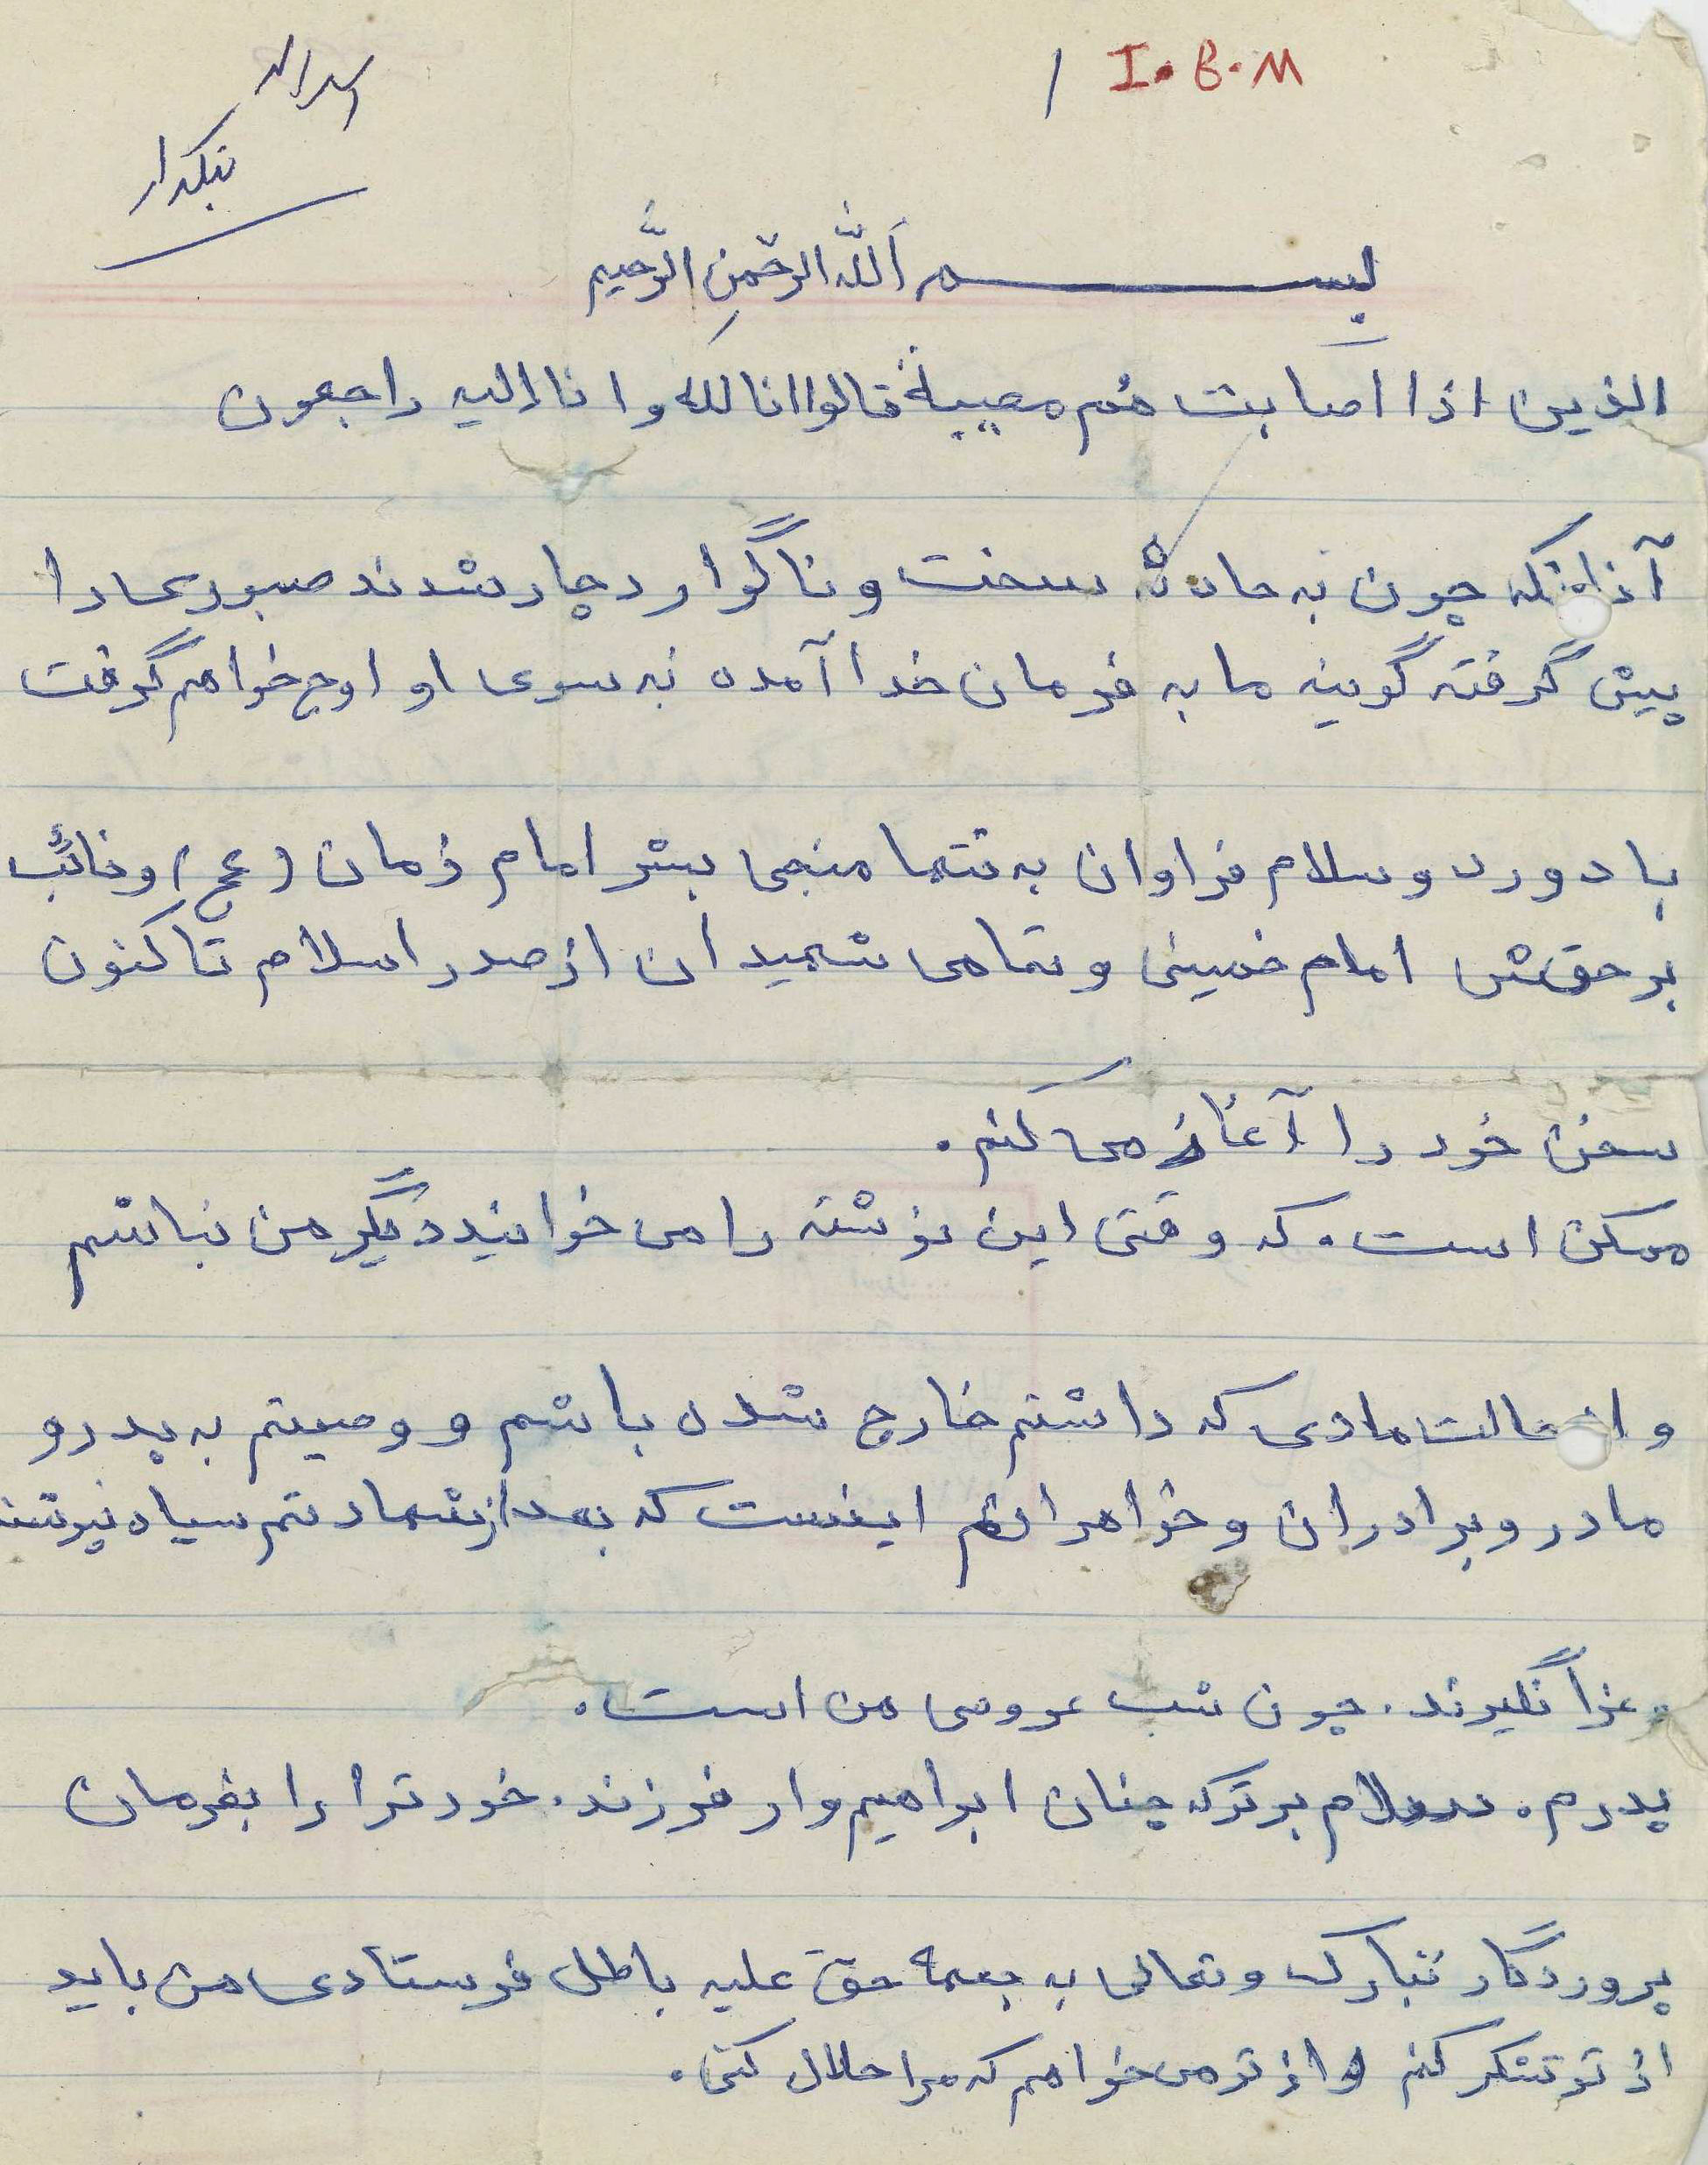 I.B.M /
اسداله
نیکدار
بسم اَللّه الرحمنِ الرَّحیم
الذین اذا اصابت هُم مصیبةٌ قالوا انا لله و انا الیه راجعون
آنانکه چون به حادثه سخت و ناگوار دچار شدند صبوری را
پیش گرفته گویند ما به فرمان خدا آمده نه سوی او اوج خواهم گرفت
با دورد و سلام فراوان به تنها منجی بشر امام زمان (عج) و نائب
بر حقش امام خمینی و تمامی شهیدان از صدر اسلام تا کنون
سخن خود را آغاز می کنم.
ممکن است. که وقتی این نوشته را می خوانید دیگر من نباشم
و از حالت مادی که داشتم خارج شده باشم و وصیتم به پدر و
مادر و برادران و خواهرانم اینست که بعد از شهادتم سیاه نپوشند
و عزا نگیرند. چون شب عروسی من است.
پدرم. سلام بر تو که چنان ابراهیم وار فرزند. خود ترا را بفرمان
پروردگار تبارک و تعالی به جبهه حق علیه باطل فرستادی من باید
از تو تشکر کنم و از تو می خواهم که مرا حلال کنی.